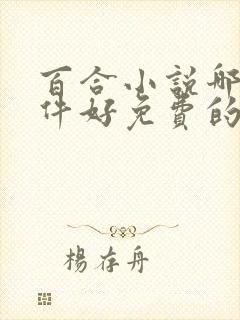 百合小说哪
件好免費的
楊存舟